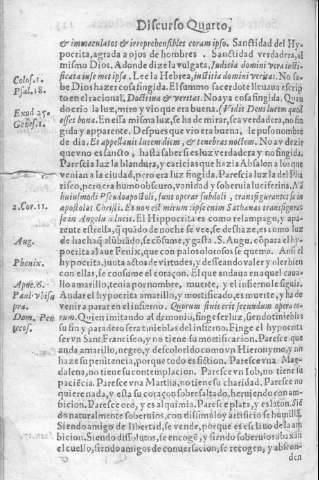 Discurso Quarto,
& immaculatos & irreprehensibles coram ipso. Sanctidad del Hy-
pocrita, agrada a ojos de hombres. Sanctidad verdadera, al
mismo Dios. Adonde dize la vulgata, Iudicia domini vera iusti-
Colos. 1.
ficata in se met ipsa. Lee la Hebrea, iustitia domini veritas. No sa-
Psal. 18.
be Dios hazer cosa fingida. El summo sacerdote lleuaua escrip-
to en el racional, Doctrina & veritas. No aya cosa fingida. Quan
Exod. 25.
do crio la luz, miro y vio que era buena. Vidit Deus lucem quod
Genes. 1.
esset bona. En essa misma luz, se ha de mirar, sea verdadera, no fin
gida y aparente. Despues que vio era buena, le puso nombre
de dia, Et appellauit lucem diem, & tenebras noctem. No av dezir
que viuo es sancto, hasta saber si es luz verdadera y no fingida.
Parescia luz la blandura, y caricias que hazia Absalon a los que
venian a la ciudad, pero era luz fingida. Parescia luz la del Pha
riseo, pero era humo obscuro, vanidad y soberuia luciferina. Nã
huiusmodi Pseudoapostoli, sunt operarij subdoli, transfigurantes se in
2. Cor. 11.
apostolos Christi. Et non est mirum ipse enim Sathanas transfigurat
se in Angelũ lucis. El Hippocrita es como relampago, y apa-
rente estrella, q̃ quado de noche se vee, se deshaze, es como luz
Aug.
de hacha q̃ alũbrãdo, se cõsume, y gasta. S. Augu. cõpara el hy-
pocrita al aue Fenix, que con palos olorosos se quema. Ansi el
Phenix.
hypocrita, junta actos de virtudes, y desseando valer y olerbien
con ellas, se consume el coraçon. El que andaua en aquel caua
Apoc. 6.
llo amarillo, tenia por nombre, muerte, y el infierno le seguia.
Anda el hypocrita amarillo, y mortificado, es muerte, y ha de
venir a parar en el infierno. Quorum finis erit secundum opera ip-
sorum. Quien imitando al demonio, finge ser luz, siendo tinieblas
su fin y paradero sera tinieblas del infierno. Finge el hypocrita
ser vn Sant Francisco, y no tiene su mortificacion. Paresce que
anda amarillo, negro, y descolorido como vn Hieronymo, y no
haze su penitencia, porque todo es fiction. Paresce vna Mag-
dalena, no tiene su contemplacion. Paresce vn Iob, no tiene su
paciẽcia. Paresce vna Martha, no tiene su charidad. Paresce no
quiere nada, y esta su coraçon sobresaltado, heruiendo con am-
bicion. Paresce oro, y es alquimia. Paresce plata, y es laton. Siẽ
do naturalmente soberuios, con dissimulo y artificio se humillã.
Siendo amigo de libertad, se vende, porque es esclauo de la am-
bicion. Siendo dissolutos, se encogẽ, y siendo soberuios abaxan
el cuello, siendo amigos de conuersacion, se retogen, y abscon-
den